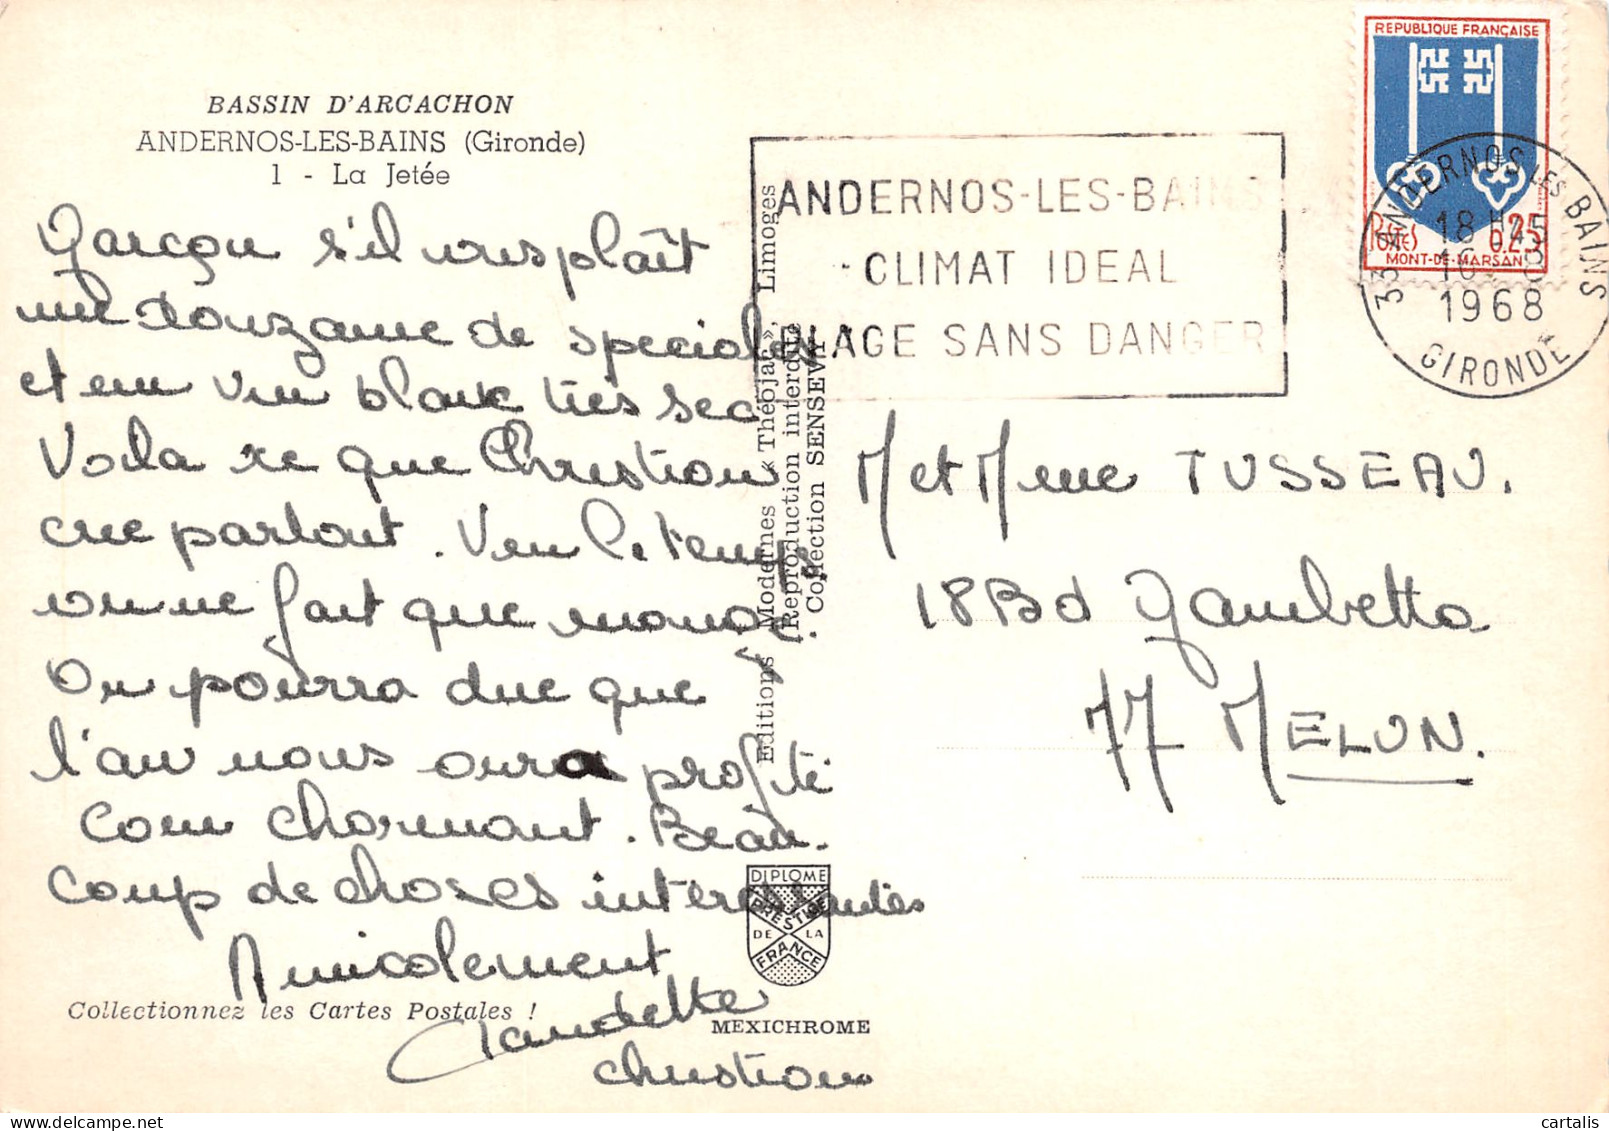 BASSIN D'ARCACHON
ANDERNOS-LES-BAINS (Gironde)
1 - La Jetée
Garçon s'il vous plaît
une douzaine de speciales
et un vin blanc très sec
Voila ce que Christian
crie partout. Vu le temps
on ne fait que manger.
On pourra dire que
l'air nous aura profité
Com charmant. Beau-
coup de choses interessantes
Amicalement
Claudette
Christian
Collectionnez les Cartes Postales !
Editions Modernes « Théojac », Limoges
Reproduction interdite
Collection SENSEVY
DIPLOME
PRESTIGE
DE LA
FRANCE
MEXICHROME
ANDERNOS-LES-BAINS
CLIMAT IDEAL
PLAGE SANS DANGER
REPUBLIQUE FRANÇAISE
POSTES 0.25
MONT-DE-MARSAN
33 ANDERNOS LES BAINS
18 H 45
1968
GIRONDE
M et Mme TUSSEAU.
18 Bd Gambetta
77 MELUN.
cartalis